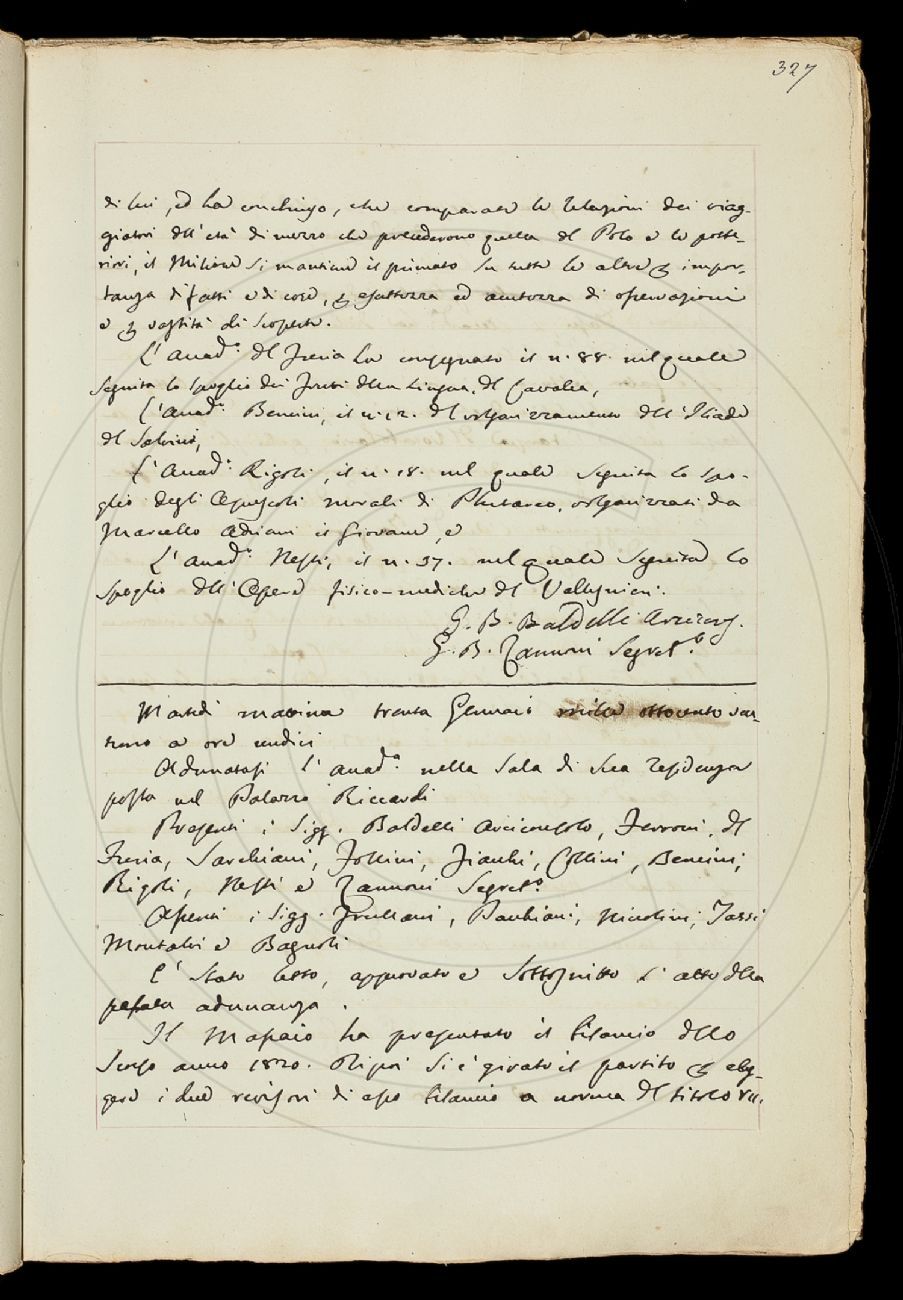 327
di lui, ed ha conchiuso, che comparate le relazioni dei viag-
giatori dell'età di mezzo che precederono quella del Polo e le poste-
riori, il Milione si mantiene il primato su tutte le altre per impor-
tanza di fatti e di cose, per esattezza ed accutezza di osservazioni
e per vastità di scoperte.
L'Accad.º del Furia ha consegnato il n. 88. nel quale
seguita lo spoglio dei frutti della Lingua, del Cavalca,
L'Accad.º Bencini, il n. 12. del volgarizzamento dell'Iliade
del Salvini,
L'Accad.º Rigoli, il n. 18. nel quale seguita lo spo-
glio degli Opuscoli morali di Plutarco, volgarizzati da
Marcello Adriani il Giovane, e
L'Accad.º Nesti, il n. 37. nel quale seguita lo
spoglio dell'Opere fisico-mediche del Vallisnieri.
G. B. Baldelli Arcicons.
G. B. Zannoni Segret.º
Martedì mattina trenta Gennaio mille ottocento ven-
tuno a ore undici
Adunatasi l'Accad.ª nella Sala di sua residenza
posta nel Palazzo Riccardi
Presenti i Sigg. Baldelli Arciconsolo, Ferroni, del
Furia, Sarchiani, Follini, Fiacchi, Collini, Bencini,
Rigoli, Nesti e Zannoni Segret.º
Assenti i Sigg. Frullani, Barbieri, Niccolini, Tassi
Montalvi e Bagnoli
È stato letto, approvato e sottoscritto l'atto della
passata adunanza.
Il Massaio ha presentato il bilancio dello
scorso anno 1820. Di poi si è girato il partito per eleg-
gere i due revisori di esso bilancio a norma del titolo VII.